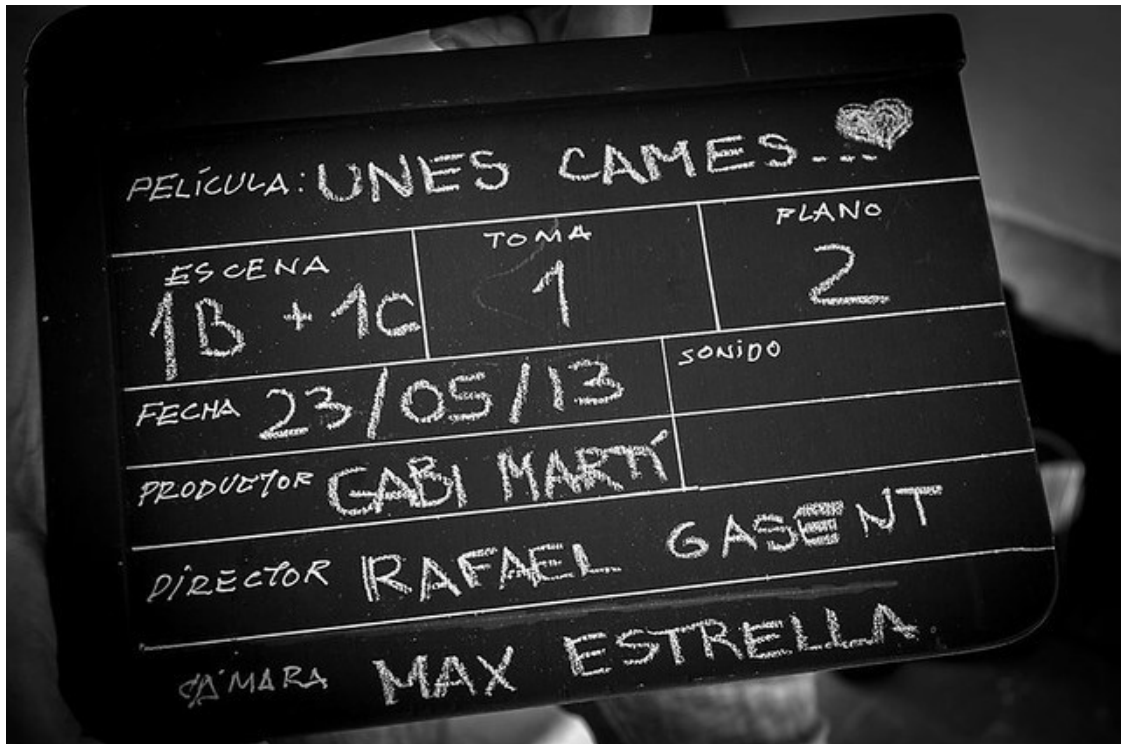 PELÍCULA: UNES CAMES...
ESCENA TOMA PLANO
1B + 1C 1 2
FECHA 23/05/13 SONIDO
PRODUCTOR GABI MARTÍ
DIRECTOR RAFAEL GASENT
CÁMARA MAX ESTRELLA.